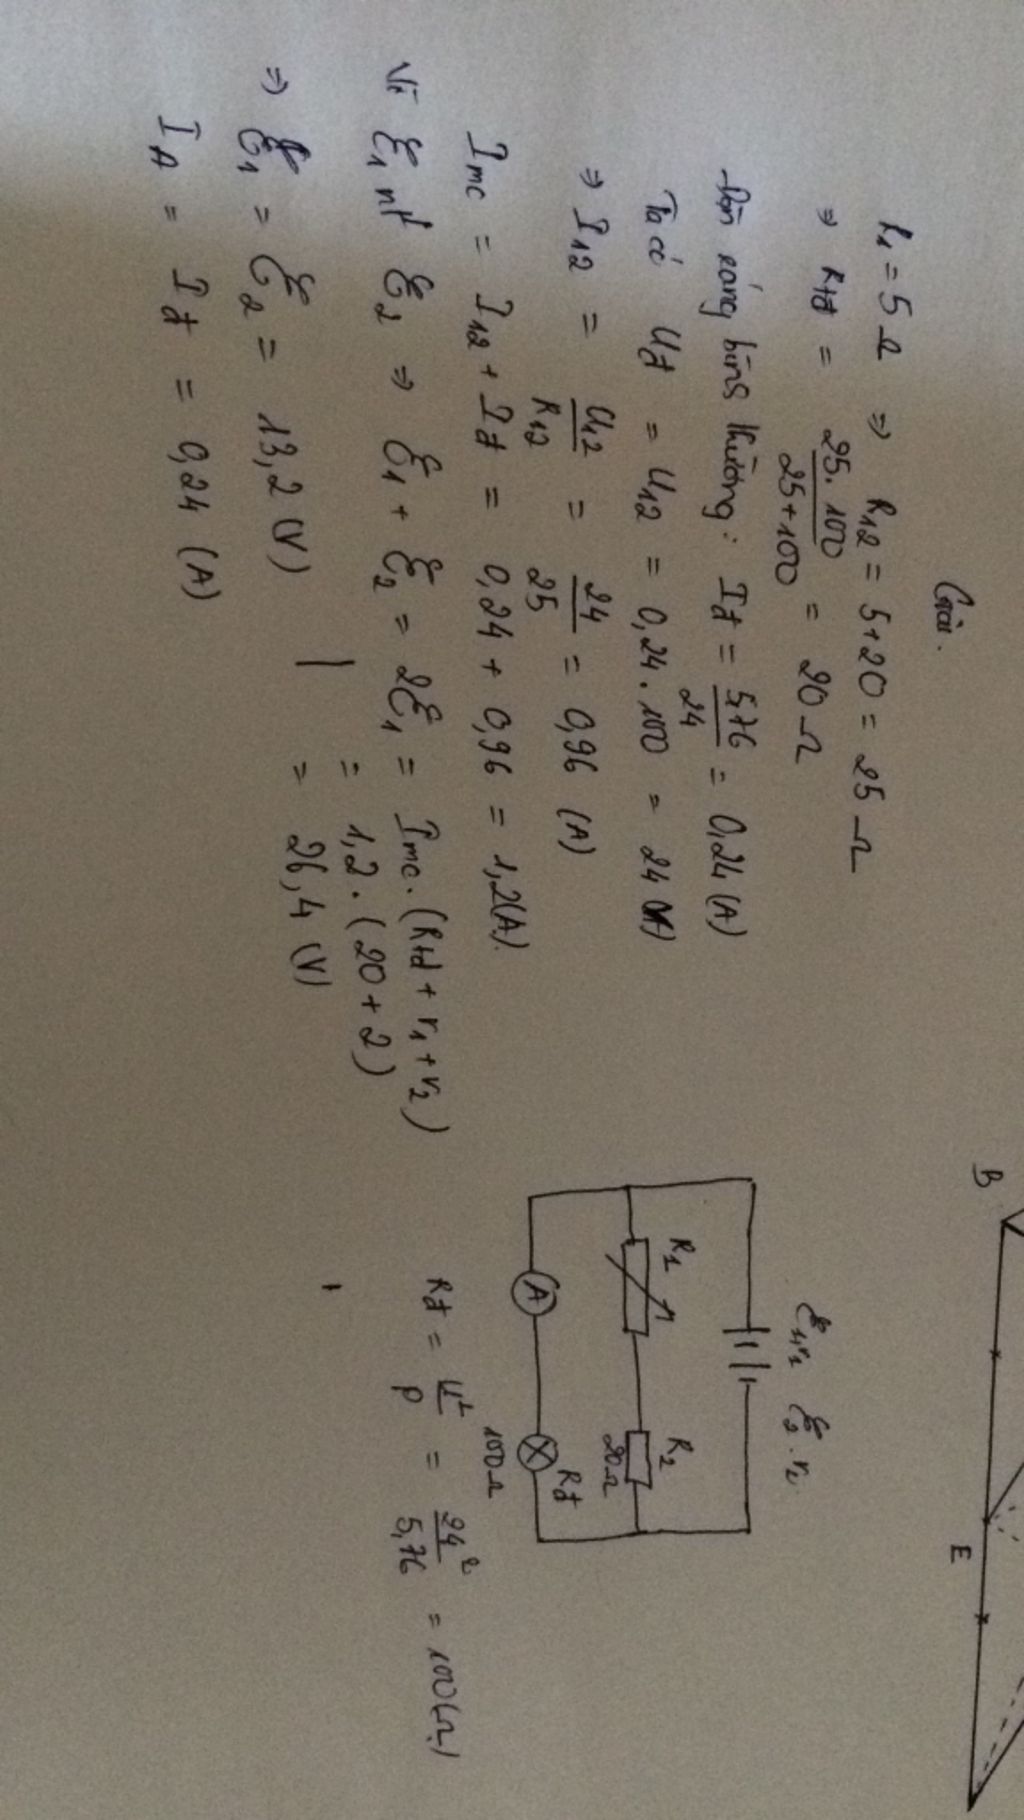 Giải.
R₁ = 5 Ω ⇒ R₁₂ = 5 + 20 = 25 Ω
⇒ Rtđ = \frac{25.100}{25+100} = 20 Ω
Đèn sáng bình thường: Iđ = \frac{5,76}{24} = 0,24 (A)
Ta có Uđ = U₁₂ = 0,24 . 100 = 24 (V)
⇒ I₁₂ = \frac{U₁₂}{R₁₂} = \frac{24}{25} = 0,96 (A)
Imc = I₁₂ + Iđ = 0,24 + 0,96 = 1,2(A).
Vì ξ₁ nt ξ₂ ⇒ ξ₁ + ξ₂ = 2ξ₁ = Imc. (Rtđ + r₁ + r₂)
= 1,2 . (20 + 2)
= 26,4 (V)
⇒ ξ₁ = ξ₂ = 13,2 (V)
I_A = Iđ = 0,24 (A)
ξ₁,r₁ ξ₂.r₂
R₁ R₂
20Ω
A Rđ
100Ω
Rđ = \frac{U²}{P} = \frac{24²}{5,76} = 100(Ω)
B E